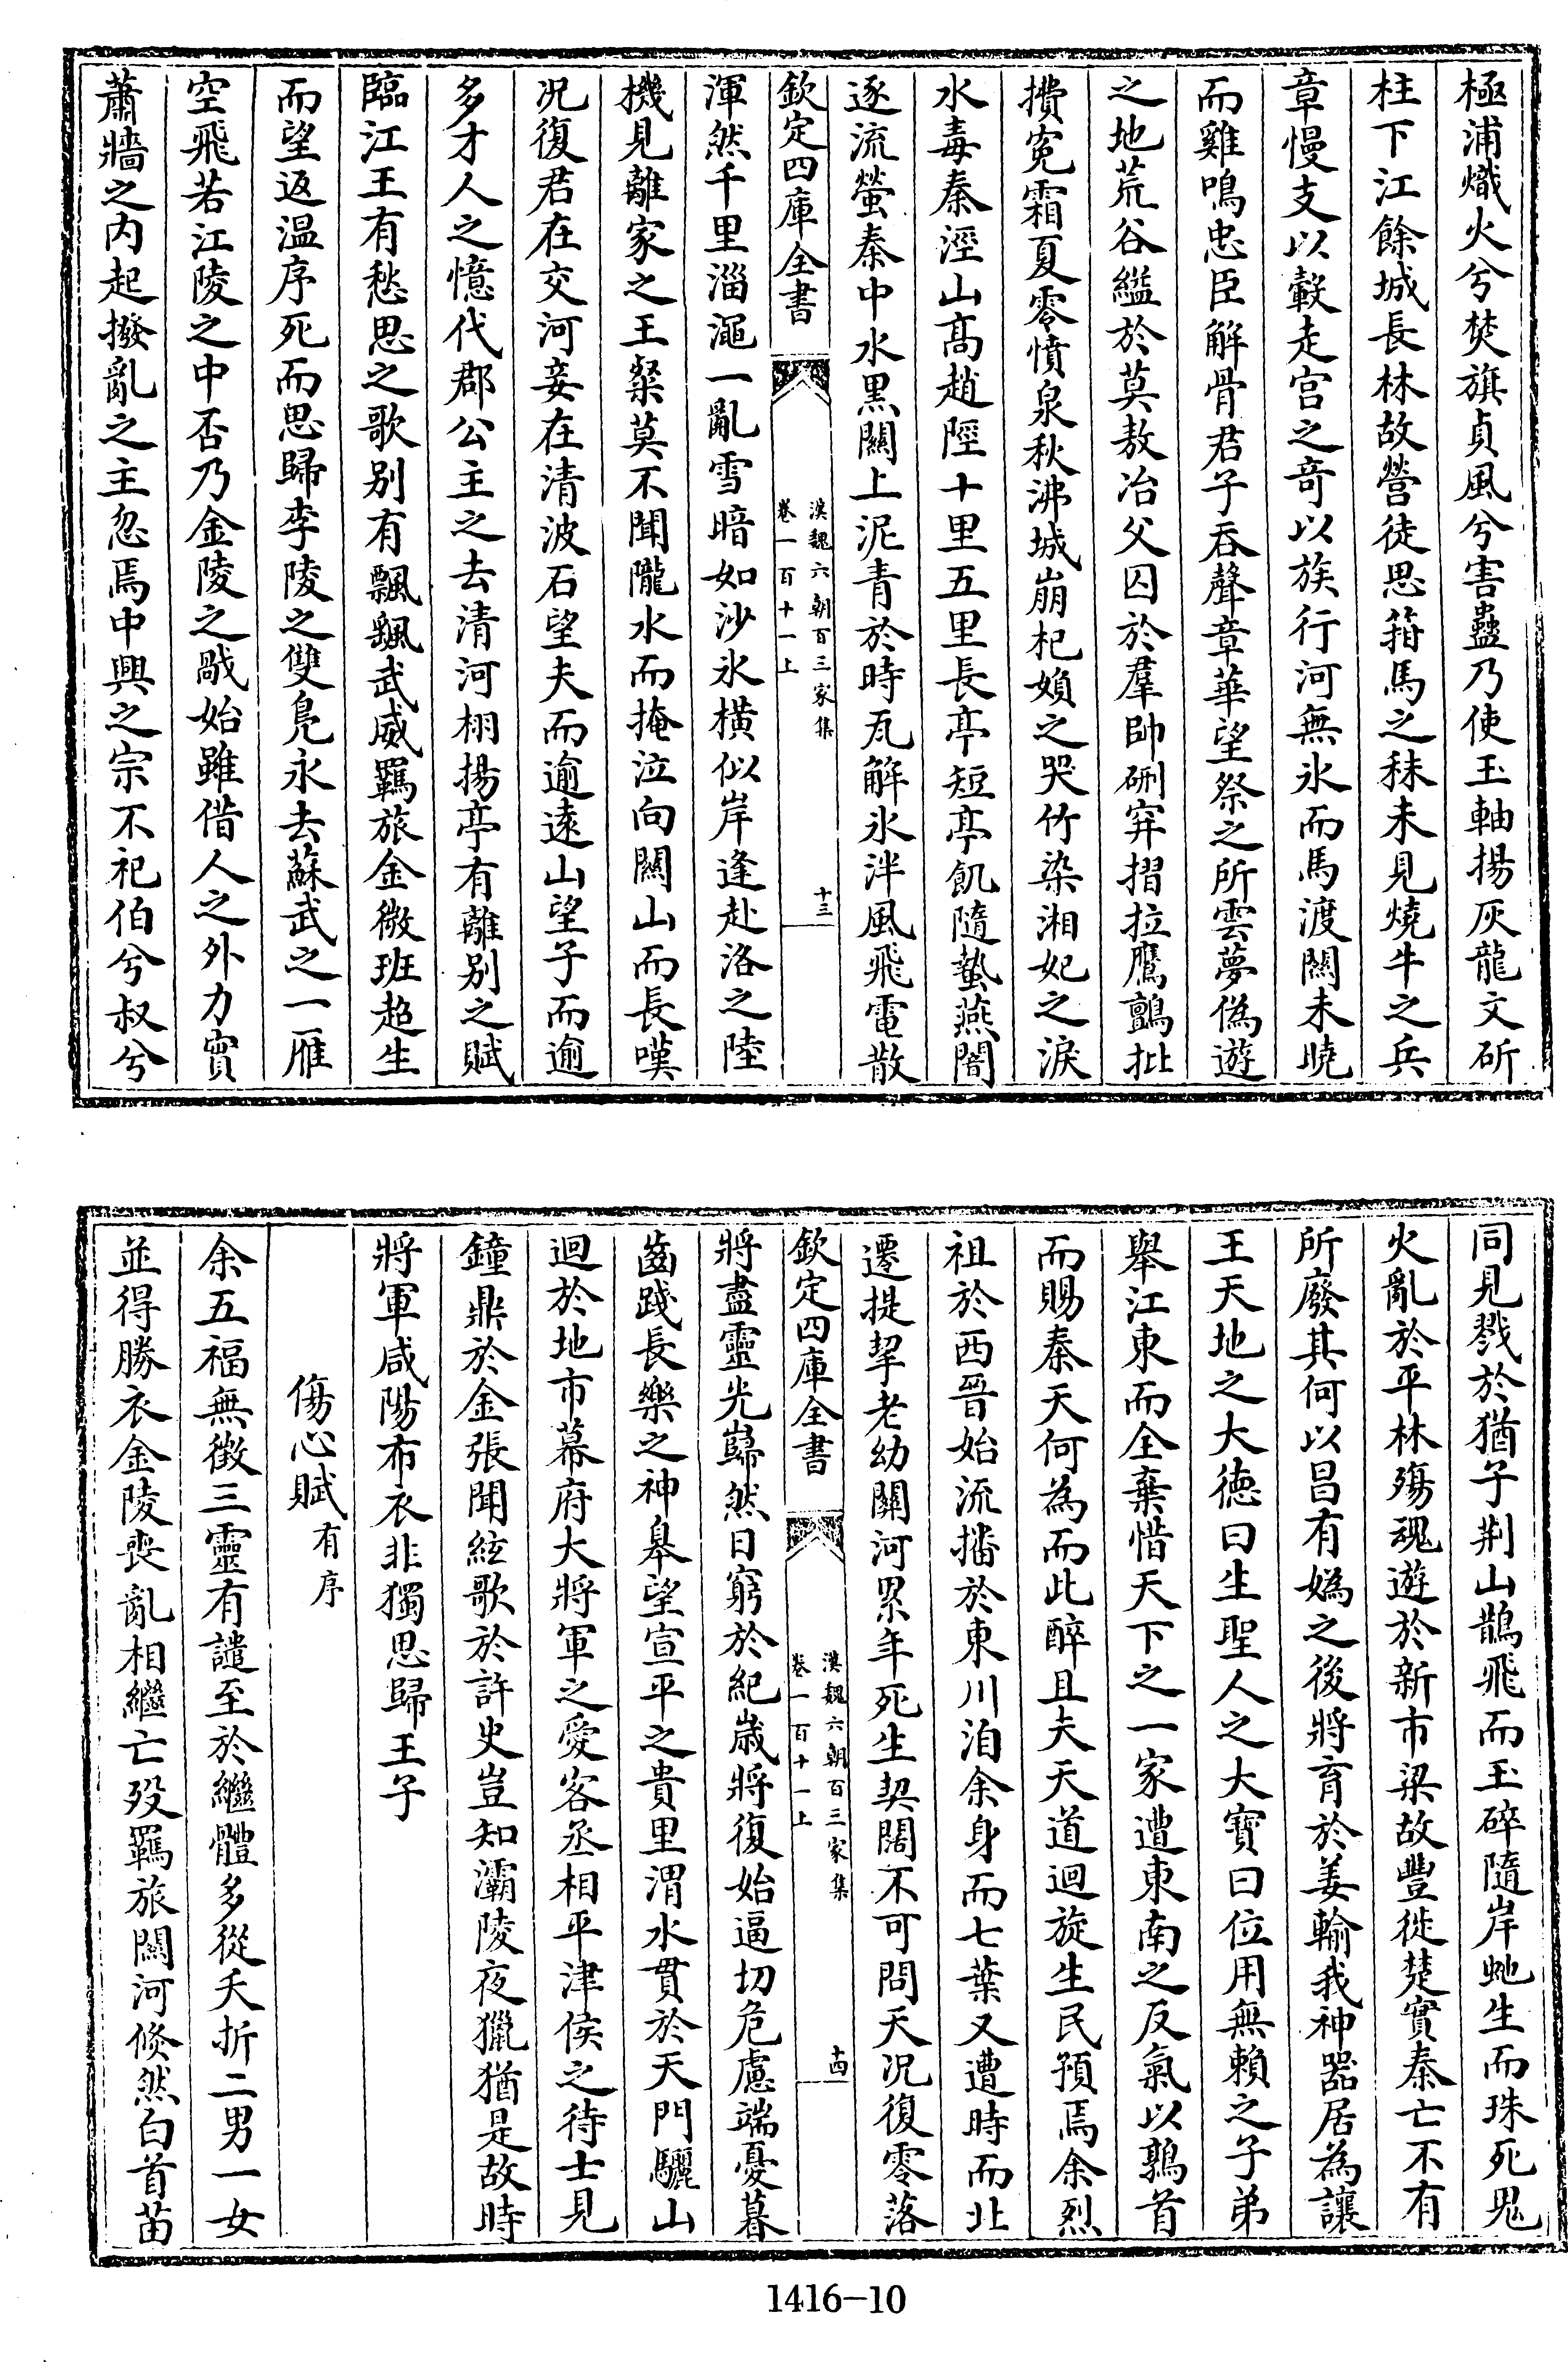 極浦熾火兮焚旗貞風兮害蠱乃使玉軸揚灰龍文斫
柱下江餘城長林故營徒思箝馬之秣未見燒牛之兵
章慢支以轂走宫之奇以族行河無氷而馬渡關未曉
而雞鳴忠臣解骨君子吞聲章華望祭之所雲夢偽遊
之地荒谷縊於莫敖冶父囚於羣帥硎穽摺拉鷹鸇批
㩌寃霜夏零憤泉秋沸城崩杞婦之哭竹染湘妃之淚
水毒秦涇山高趙陘十里五里長亭短亭飢隨蟄燕闇
逐流螢秦中水黒關上泥青於時瓦解氷泮風飛電散
欽定四庫全書
漢魏六朝百三家集
卷一百十一上
十三
渾然千里淄澠一亂雪暗如沙氷橫似岸逢赴洛之陸
機見離家之王粲莫不聞隴水而掩泣向關山而長嘆
况復君在交河妾在清波石望夫而逾遠山望子而逾
多才人之憶代郡公主之去清河栩揚亭有離别之賦
臨江王有愁思之歌别有飄飄武威羈旅金微班超生
而望返温序死而思歸李陵之雙鳧永去蘇武之一雁
空飛若江陵之中否乃金陵之𢦤始雖借人之外力實
蕭牆之内起撥亂之主忽焉中興之宗不祀伯兮叔兮
同見戮於猶子荆山鵲飛而玉碎隨岸虵生而珠死鬼
火亂於平林殤魂遊於新市梁故豐徙楚實秦亡不有
所廢其何以昌有媯之後將育於姜輸我神器居為讓
王天地之大德曰生聖人之大寶曰位用無賴之子弟
舉江東而全棄惜天下之一家遭東南之反氣以鶉首
而賜秦天何為而此醉且夫天道迴旋生民預焉余烈
祖於西晉始流播於東川洎余身而七葉又遭時而北
遷提挈老幼關河累年死生契闊不可問天况復零落
欽定四庫全書
漢魏六朝百三家集
卷一百十一上
十四
將盡靈光巋然日窮於紀歲將復始逼切危慮端憂暮
齒踐長樂之神皋望宣平之貴里渭水貫於天門驪山
迴於地市幕府大將軍之愛客丞相平津侯之待士見
鐘鼎於金張聞絃歌於許史豈知灞陵夜獵猶是故時
將軍咸陽布衣非獨思歸王子
傷心賦有序
余五福無徵三靈有譴至於繼體多從夭折二男一女
並得勝衣金陵喪亂相繼亡殁羈旅關河倏然白首苗
1416-10